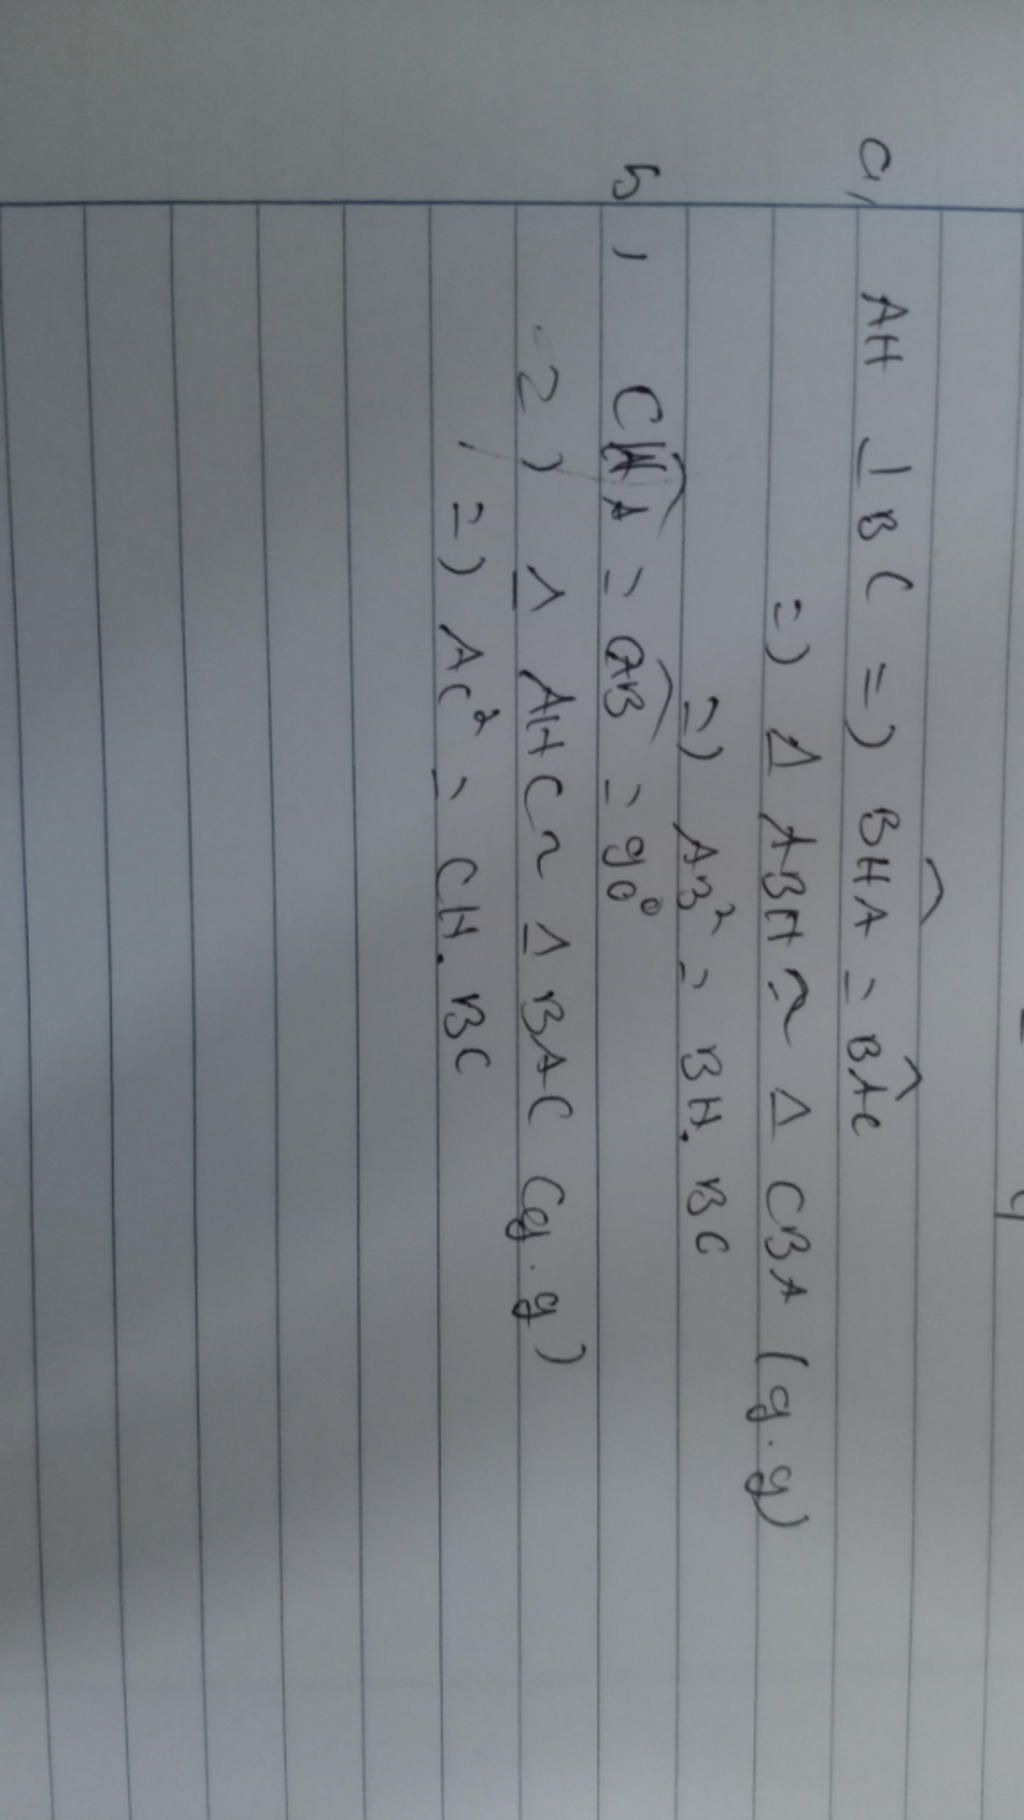 a, AH ⊥ BC => \widehat{BHA} = \widehat{BAC}
=> Δ ABH ~ Δ CBA (g.g)
=> AB² = BH. BC
b, \widehat{CHA} = \widehat{CAB} = 90°
=> Δ AHC ~ Δ BAC (g.g)
=> AC² = CH. BC